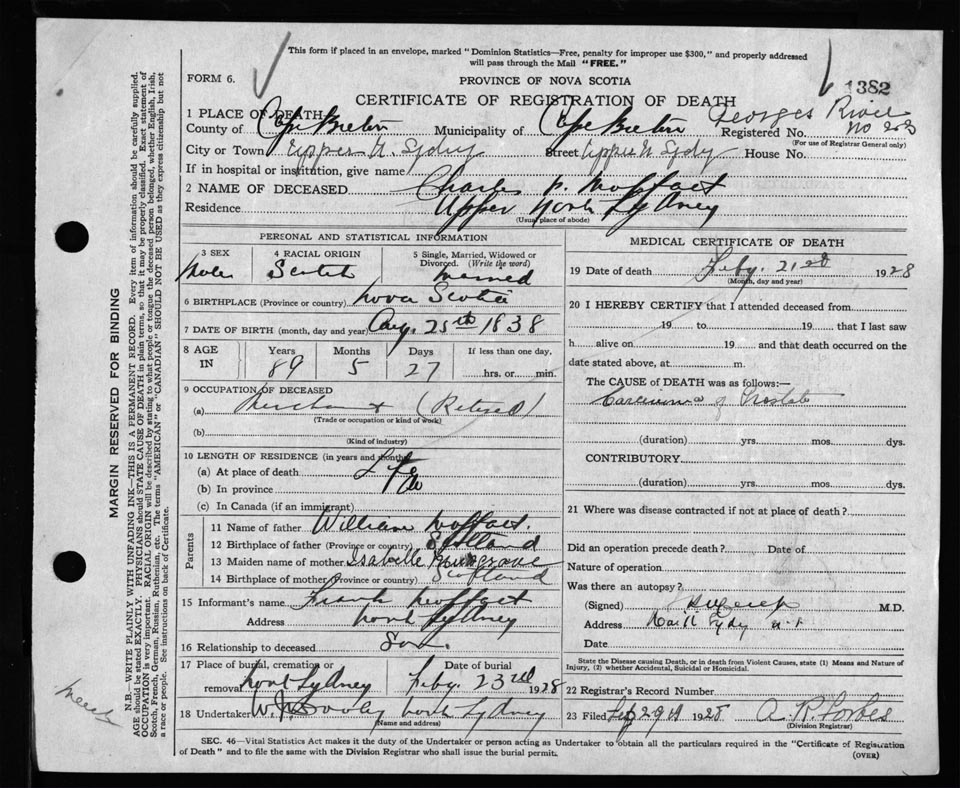 This form if placed in an envelope, marked "Dominion Statistics—Free, penalty for improper use $300," and properly addressed
will pass through the Mail "FREE."
FORM 6.
PROVINCE OF NOVA SCOTIA
1382
CERTIFICATE OF REGISTRATION OF DEATH
Georges River
1 PLACE OF DEATH
County of Cape Breton Municipality of Cape Breton Registered No. No
(For use of Registrar General only)
City or Town Upper N. Sydney Street Upper N Sydney House No.
If in hospital or institution, give name
2 NAME OF DECEASED Charles Moffatt
Residence Upper North Sydney
(Usual place of abode)
PERSONAL AND STATISTICAL INFORMATION
3 SEX 4 RACIAL ORIGIN 5 Single, Married, Widowed or
Divorced. (Write the word)
Male Scotch Married
6 BIRTHPLACE (Province or country) Nova Scotia
7 DATE OF BIRTH (month, day and year) Aug. 25th 1838
8 AGE IN Years Months Days If less than one day,
89 5 27 hrs. or min.
9 OCCUPATION OF DECEASED
(a) Merchant (Retired)
(Trade or occupation or kind of work)
(b)
(Kind of industry)
10 LENGTH OF RESIDENCE (in years and months)
(a) At place of death Life
(b) In province do
(c) In Canada (if an immigrant)
Parents
11 Name of father William Moffatt.
12 Birthplace of father (Province or country) Scotland
13 Maiden name of mother Isabelle Musgrave
14 Birthplace of mother (Province or country) Scotland
15 Informant's name Frank Moffatt
Address North Sydney
16 Relationship to deceased Son.
17 Place of burial, cremation or removal North Sydney Date of burial Feby. 23rd 1928
18 Undertaker North Sydney
(Name and address)
MEDICAL CERTIFICATE OF DEATH
19 Date of death Feby. 21st 1928
(Month, day and year)
20 I HEREBY CERTIFY that I attended deceased from
19 to 19 that I last saw
h alive on 19 and that death occurred on the
date stated above, at m.
The CAUSE OF DEATH was as follows:—
Carcinoma of Prostate
(duration) yrs. mos. dys.
CONTRIBUTORY
(duration) yrs. mos. dys.
21 Where was disease contracted if not at place of death?
Did an operation precede death? Date of
Nature of operation
Was there an autopsy?
(Signed) M.D.
Address North Sydney N.S.
Date
State the Disease causing Death, or in death from Violent Causes, state (1) Means and Nature of
Injury, (2) whether Accidental, Suicidal or Homicidal.
22 Registrar's Record Number
23 Filed 1928 A. R. Forbes
(Division Registrar)
SEC. 46—Vital Statistics Act makes it the duty of the Undertaker or person acting as Undertaker to obtain all the particulars required in the "Certificate of Registration
of Death" and to file the same with the Division Registrar who shall issue the burial permit.
(OVER)
MARGIN RESERVED FOR BINDING
N.B.—WRITE PLAINLY WITH UNFADING INK—THIS IS A PERMANENT RECORD. Every item of information should be carefully supplied.
AGE should be stated EXACTLY. PHYSICIANS should STATE CAUSE OF DEATH in plain terms, so that it may be properly classified. Exact statement of
OCCUPATION is very important. RACIAL ORIGIN will be described by stating to what people or tongue the deceased person belonged, whether English, Irish,
Scotch, French, German, Russian, Ruthenian, etc. The terms "AMERICAN" or "CANADIAN" SHOULD NOT BE USED as they express citizenship but not
a race or people. See instructions on back of Certificate.